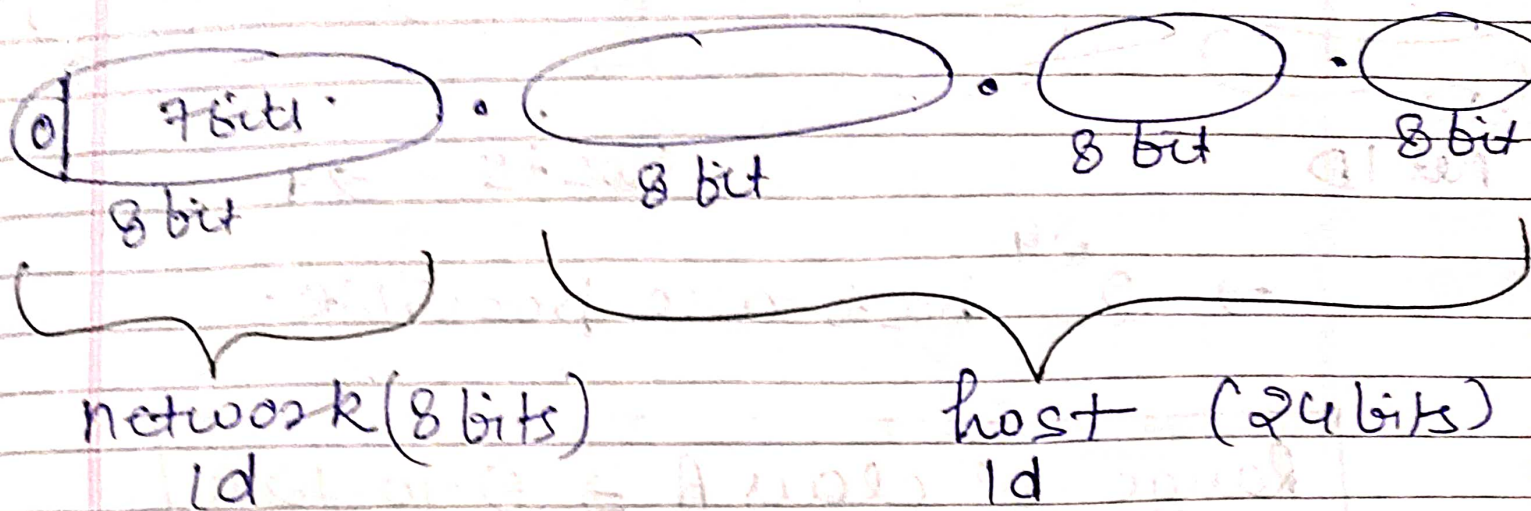 0 7 bits . . .
8 bit 8 bit 8 bit 8 bit
network (8 bits) host (24 bits)
id id